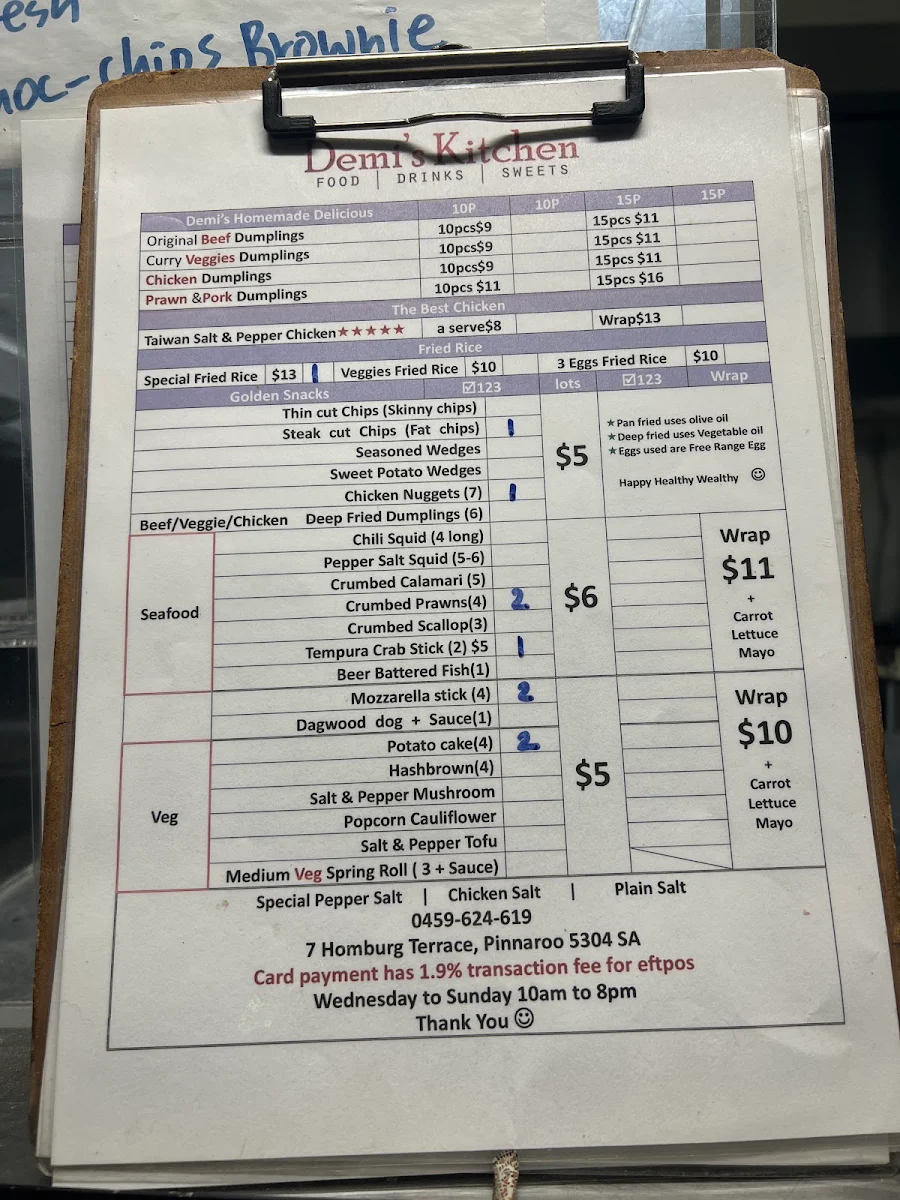 esh
hoc-chips Brownie
Demi's Kitchen
FOOD | DRINKS | SWEETS
Demi's Homemade Delicious 10P 10P 15P 15P
Original Beef Dumplings 10pcs$9 15pcs $11
Curry Veggies Dumplings 10pcs$9 15pcs $11
Chicken Dumplings 10pcs$9 15pcs $11
Prawn &Pork Dumplings 10pcs $11 15pcs $16
The Best Chicken
Taiwan Salt & Pepper Chicken★★★★★ a serve$8 Wrap$13
Fried Rice
Special Fried Rice $13 1 Veggies Fried Rice $10 3 Eggs Fried Rice $10
Golden Snacks ☑123 lots ☑123 Wrap
Thin cut Chips (Skinny chips)
Steak cut Chips (Fat chips) 1
Seasoned Wedges
Sweet Potato Wedges
Chicken Nuggets (7) 1
Beef/Veggie/Chicken Deep Fried Dumplings (6)
$5
★Pan fried uses olive oil
★Deep fried uses Vegetable oil
★Eggs used are Free Range Egg
Happy Healthy Wealthy ☺
Seafood
Chili Squid (4 long)
Pepper Salt Squid (5-6)
Crumbed Calamari (5)
Crumbed Prawns(4) 2
Crumbed Scallop(3)
Tempura Crab Stick (2) $5 1
Beer Battered Fish(1)
$6
Wrap
$11
+
Carrot
Lettuce
Mayo
Mozzarella stick (4) 2
Dagwood dog + Sauce(1)
Veg
Potato cake(4) 2
Hashbrown(4)
Salt & Pepper Mushroom
Popcorn Cauliflower
Salt & Pepper Tofu
Medium Veg Spring Roll ( 3 + Sauce)
$5
Wrap
$10
+
Carrot
Lettuce
Mayo
Special Pepper Salt | Chicken Salt | Plain Salt
0459-624-619
7 Homburg Terrace, Pinnaroo 5304 SA
Card payment has 1.9% transaction fee for eftpos
Wednesday to Sunday 10am to 8pm
Thank You ☺